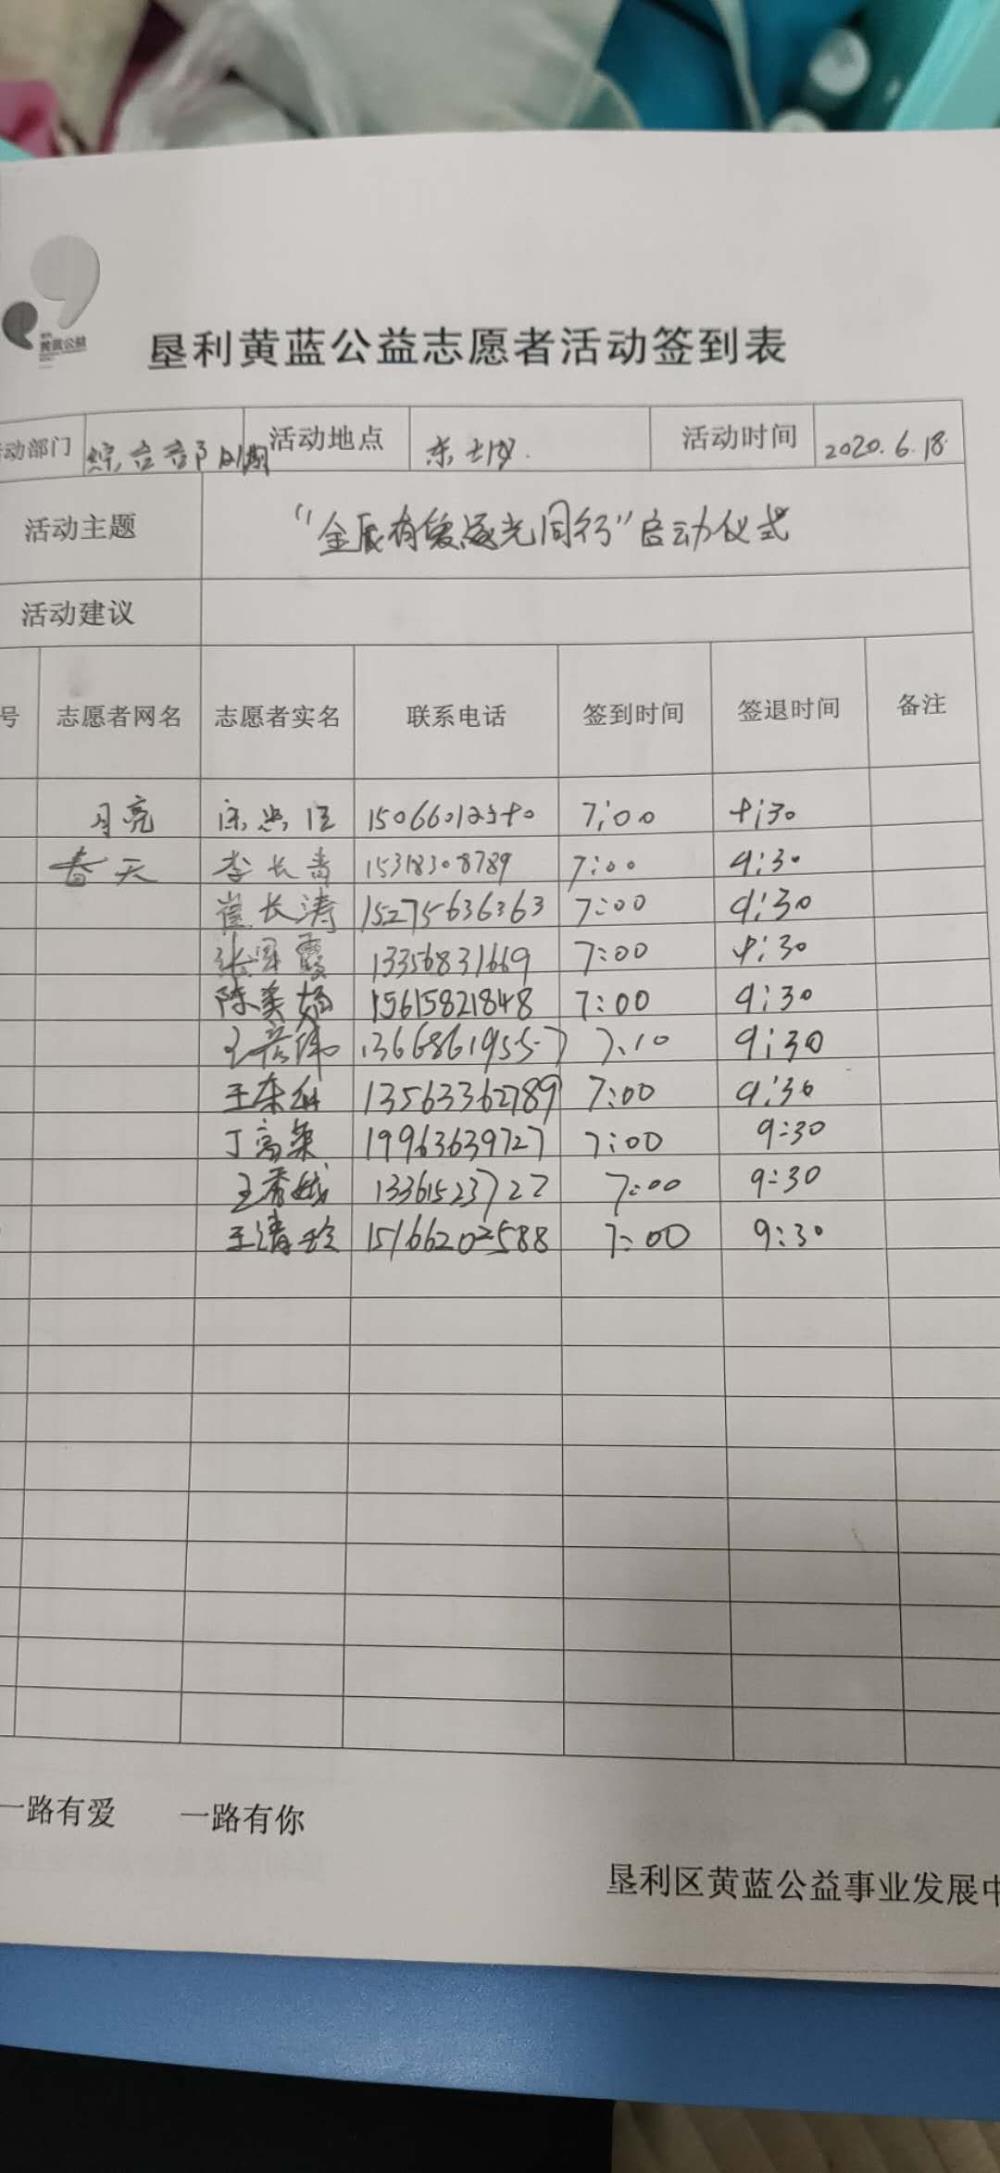 黄蓝公益
垦利黄蓝公益志愿者活动签到表
动部门 综合部 活动地点 活动时间 2020.6.18
活动主题 "金辰有爱逐光同行"启动仪式
活动建议
号 志愿者网名 志愿者实名 联系电话 签到时间 签退时间 备注
月亮 7:00 9:30
春天 李长青 15318308789 7:00 9:30
崔长涛 15275636363 7:00 9:30
霞 13356831669 7:00 9:30
陈美娟 15615821848 7:00 9:30
13668619557 7:10 9:30
13563362789 7:00 9:30
丁高荣 19963639727 7:00 9:30
王秀娥 13361523722 7:00 9:30
王清玲 15166202588 7:00 9:30
一路有爱 一路有你
垦利区黄蓝公益事业发展中